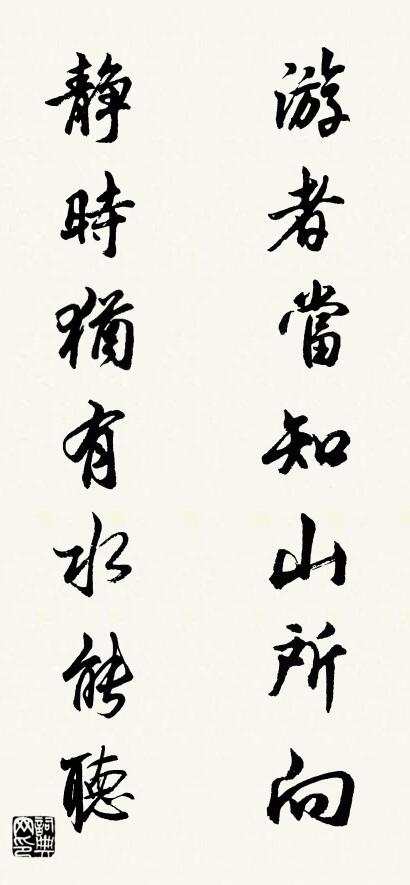 游者當知山所向
靜時猶有水能聽
詞典網印